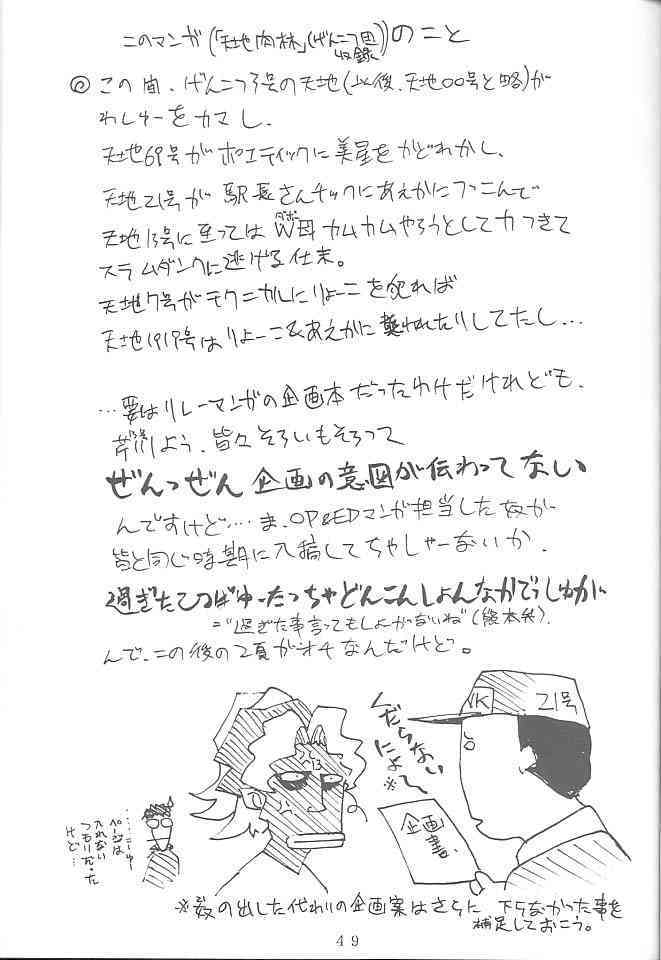 このマンガ(「天地肉林」(げんこつ団収録))のこと
◎この間、げんこつ3号の天地(以後、天地00号と略)が
わしゅーをカマし、
天地69号がポエティックに美星をかどわかし、
天地21号が駅長さんチックにあえかにつっこんで
天地13号に至ってはW母カムカムやろうとして力つきて
スラムダンクに逃げる仕末。
天地7号がテクニカルにりょーこを犯れば
天地1919号はりょーこ&あえかに襲われたりしてたし…
…要はリレーマンガの企画本だったわけだけれども、
よう、皆々そろいもそろって
ぜんっぜん企画の意図が伝わってない
んですけど…ま、OP&EDマンガ担当した奴が
皆と同じ時期に入稿してちゃしゃーないか、
過ぎたこつばゆーたっちゃどんこんしょんなかでっしゅかに
="過ぎた事言ってもしょがないね"(熊本弁)、
んで、この後の2頁がオチなんだけど。
くだらない
によ〜
※
VK
21号
13
企画書
ページは
入れない
つもりだった
けど…
※奴の出した代わりの企画案はさらに下らなかった事を
補足しておこう。
49